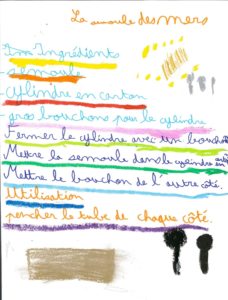 La semoule des mers
Ingrédients
- semoule
- cylindre en carton
- gros bouchons pour le cylindre
Fermer le cylindre avec un bouchon
Mettre la semoule dans le cylindre
Mettre le bouchon de l'autre côté.
Utilisation
pencher le tube de chaque côté.